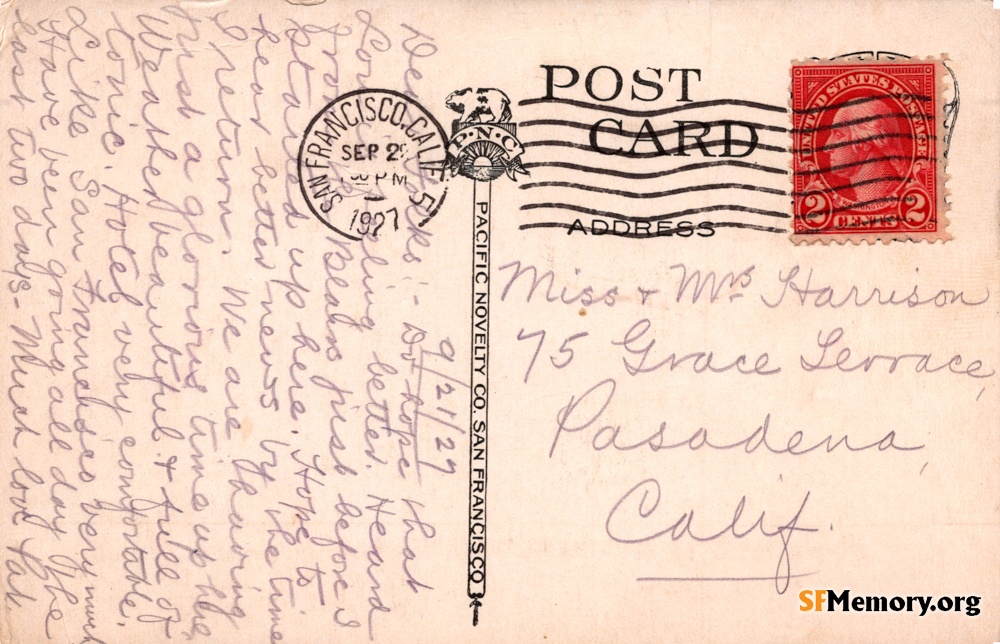 POST
CARD
ADDRESS
SAN FRANCISCO, CALIF.
SEP 2
PM
1927
5
P.N.C.
UNITED STATES POSTAGE
WASHINGTON
2 CENTS 2
PACIFIC NOVELTY CO. SAN FRANCISCO
9/21/27
Dear
Do hope that
better. Heard
from Mrs. Beals just before I
started up here. Hope to
hear better news by the time
I return. We are having
just a glorious time up here.
Weather beautiful & full of
tonic. Hotel very comfortable.
Like San Francisco very much
Have been going all day the
last two days - Much love
Miss & Mrs Harrison
75 Grace Terrace,
Pasadena,
Calif.
SFMemory.org